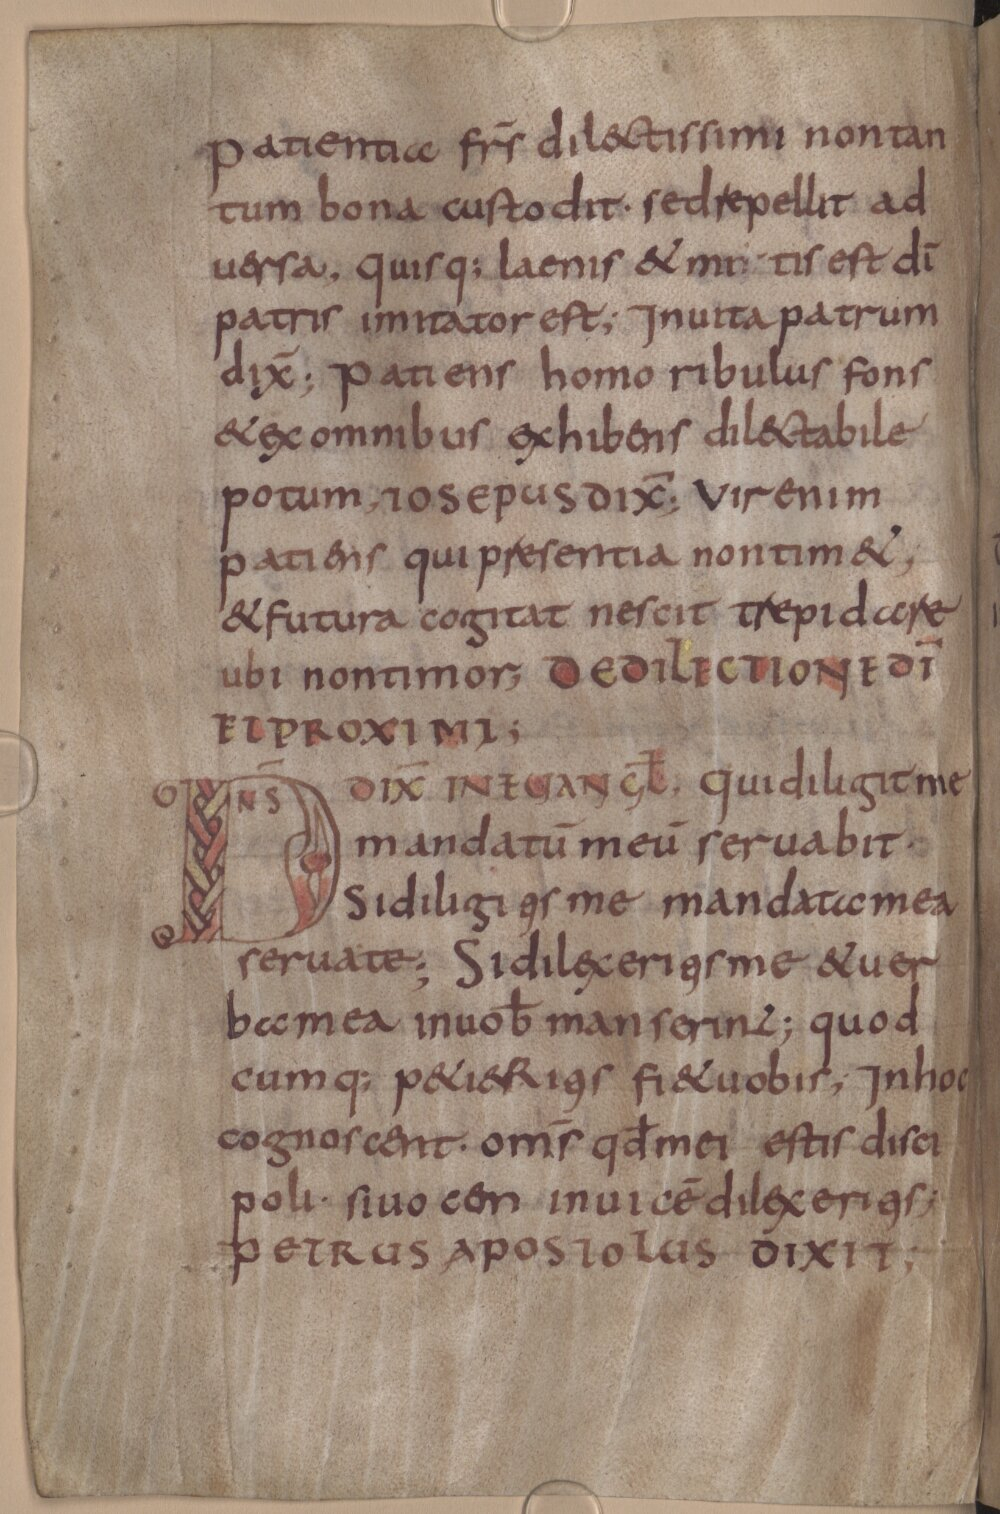 patientia fr̄s dilectissimi non tan
tum bona custodit· sed repellit ad
uersa, quisq; laenis & mitis est dī
patris imitator est; In uita patrum
dix̄; Patiens homo ribulus fons
& ex omnibus exhibens dilectabile
potum, IOSEPUS DIX̄; Vir enim
patiens qui presentia non tim&,
& futura cogitat nescit trepidare
ubi non timor; DE DILECTIONE DĪ
ET PROXIMI;
DN̄S DIX̄ IN EUANGĘL̄. Qui diligit me
mandatū meū seruabit·
Si diligitis me mandata mea
seruate; Si dilexeritis me & uer
ba mea in uob̄ manserint; quod
cumq; p&ieritis fi& uobis, In hoc
cognoscent· om̄s qd̄ mei estis disci
poli· si uocem inuicē dilexeritis;
PETRUS APOSTOLUS DIXIT;